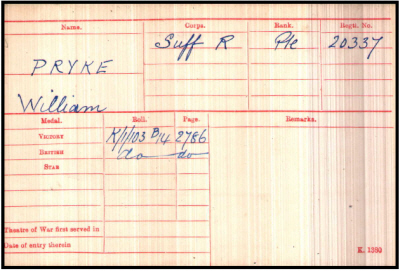 Name. Corps. Rank. Regtl. No.
Suff R Pte 20337
PRYKE
William
Medal. Roll. Page. Remarks.
VICTORY K/1/103 B14 2786
BRITISH do do
STAR
Theatre of War first served in
Date of entry therein K. 1380